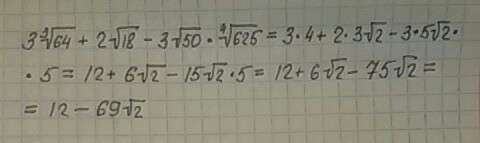 3∛64 + 2√18 − 3√50 · ∜625 = 3·4 + 2·3√2 − 3·5√2 ·
· 5 = 12 + 6√2 − 15√2 · 5 = 12 + 6√2 − 75√2 =
= 12 − 69√2